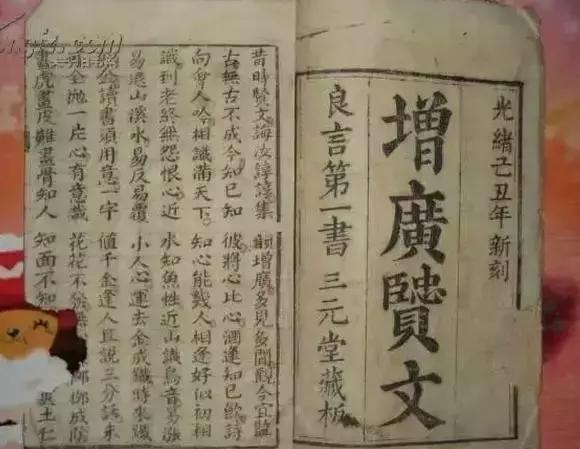 光緒己丑年新刻
增廣賢文
良言第一書 三元堂藏板
昔時賢文誨汝諄諄集 韻增廣多見多聞觀今宜鑒
古無古不成今知已知 彼將心比心酒逢知已飲詩
向會人吟相識滿天下 知心能幾人相逢好似初相
識到老終無怨恨心近 水知魚性近山識鳥音易漲
易退山溪水易反易覆 小人心運去金成鐵時來鐵
金讀書須用意一字 值千金逢人且說三分話未
全拋一片心有意栽 花花不發無 成陰
畫虎畫皮難畫骨知人 知面不知 土仁